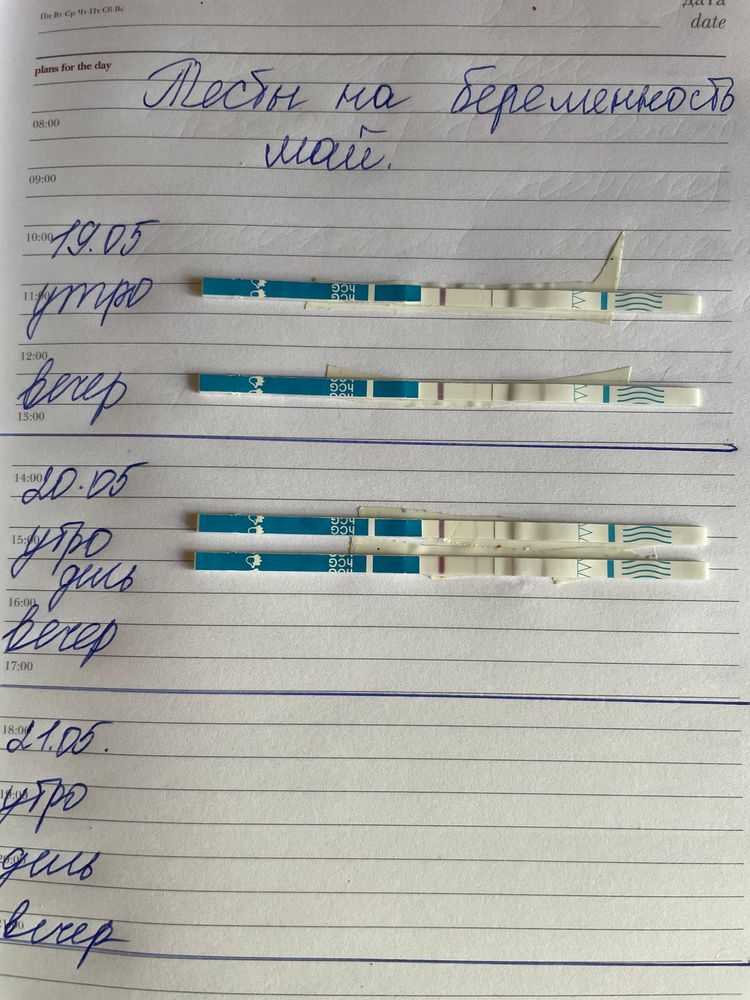 Пн Вт Ср Чт Пт Сб Вс
дата
date
plans for the day
Тесты на беременность
08:00
май.
09:00
10:00
19.05
11:00
утро
hCG
12:00
вечер
hCG
13:00
14:00
20.05
15:00
утро
hCG
день
hCG
16:00
вечер
17:00
18:00
21.05.
утро
день
вечер